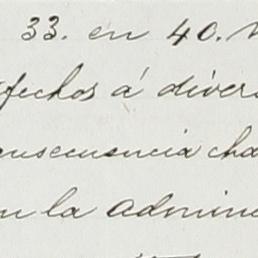 33. en 40.
fechos á divers
nsecuencia cha
en la admini